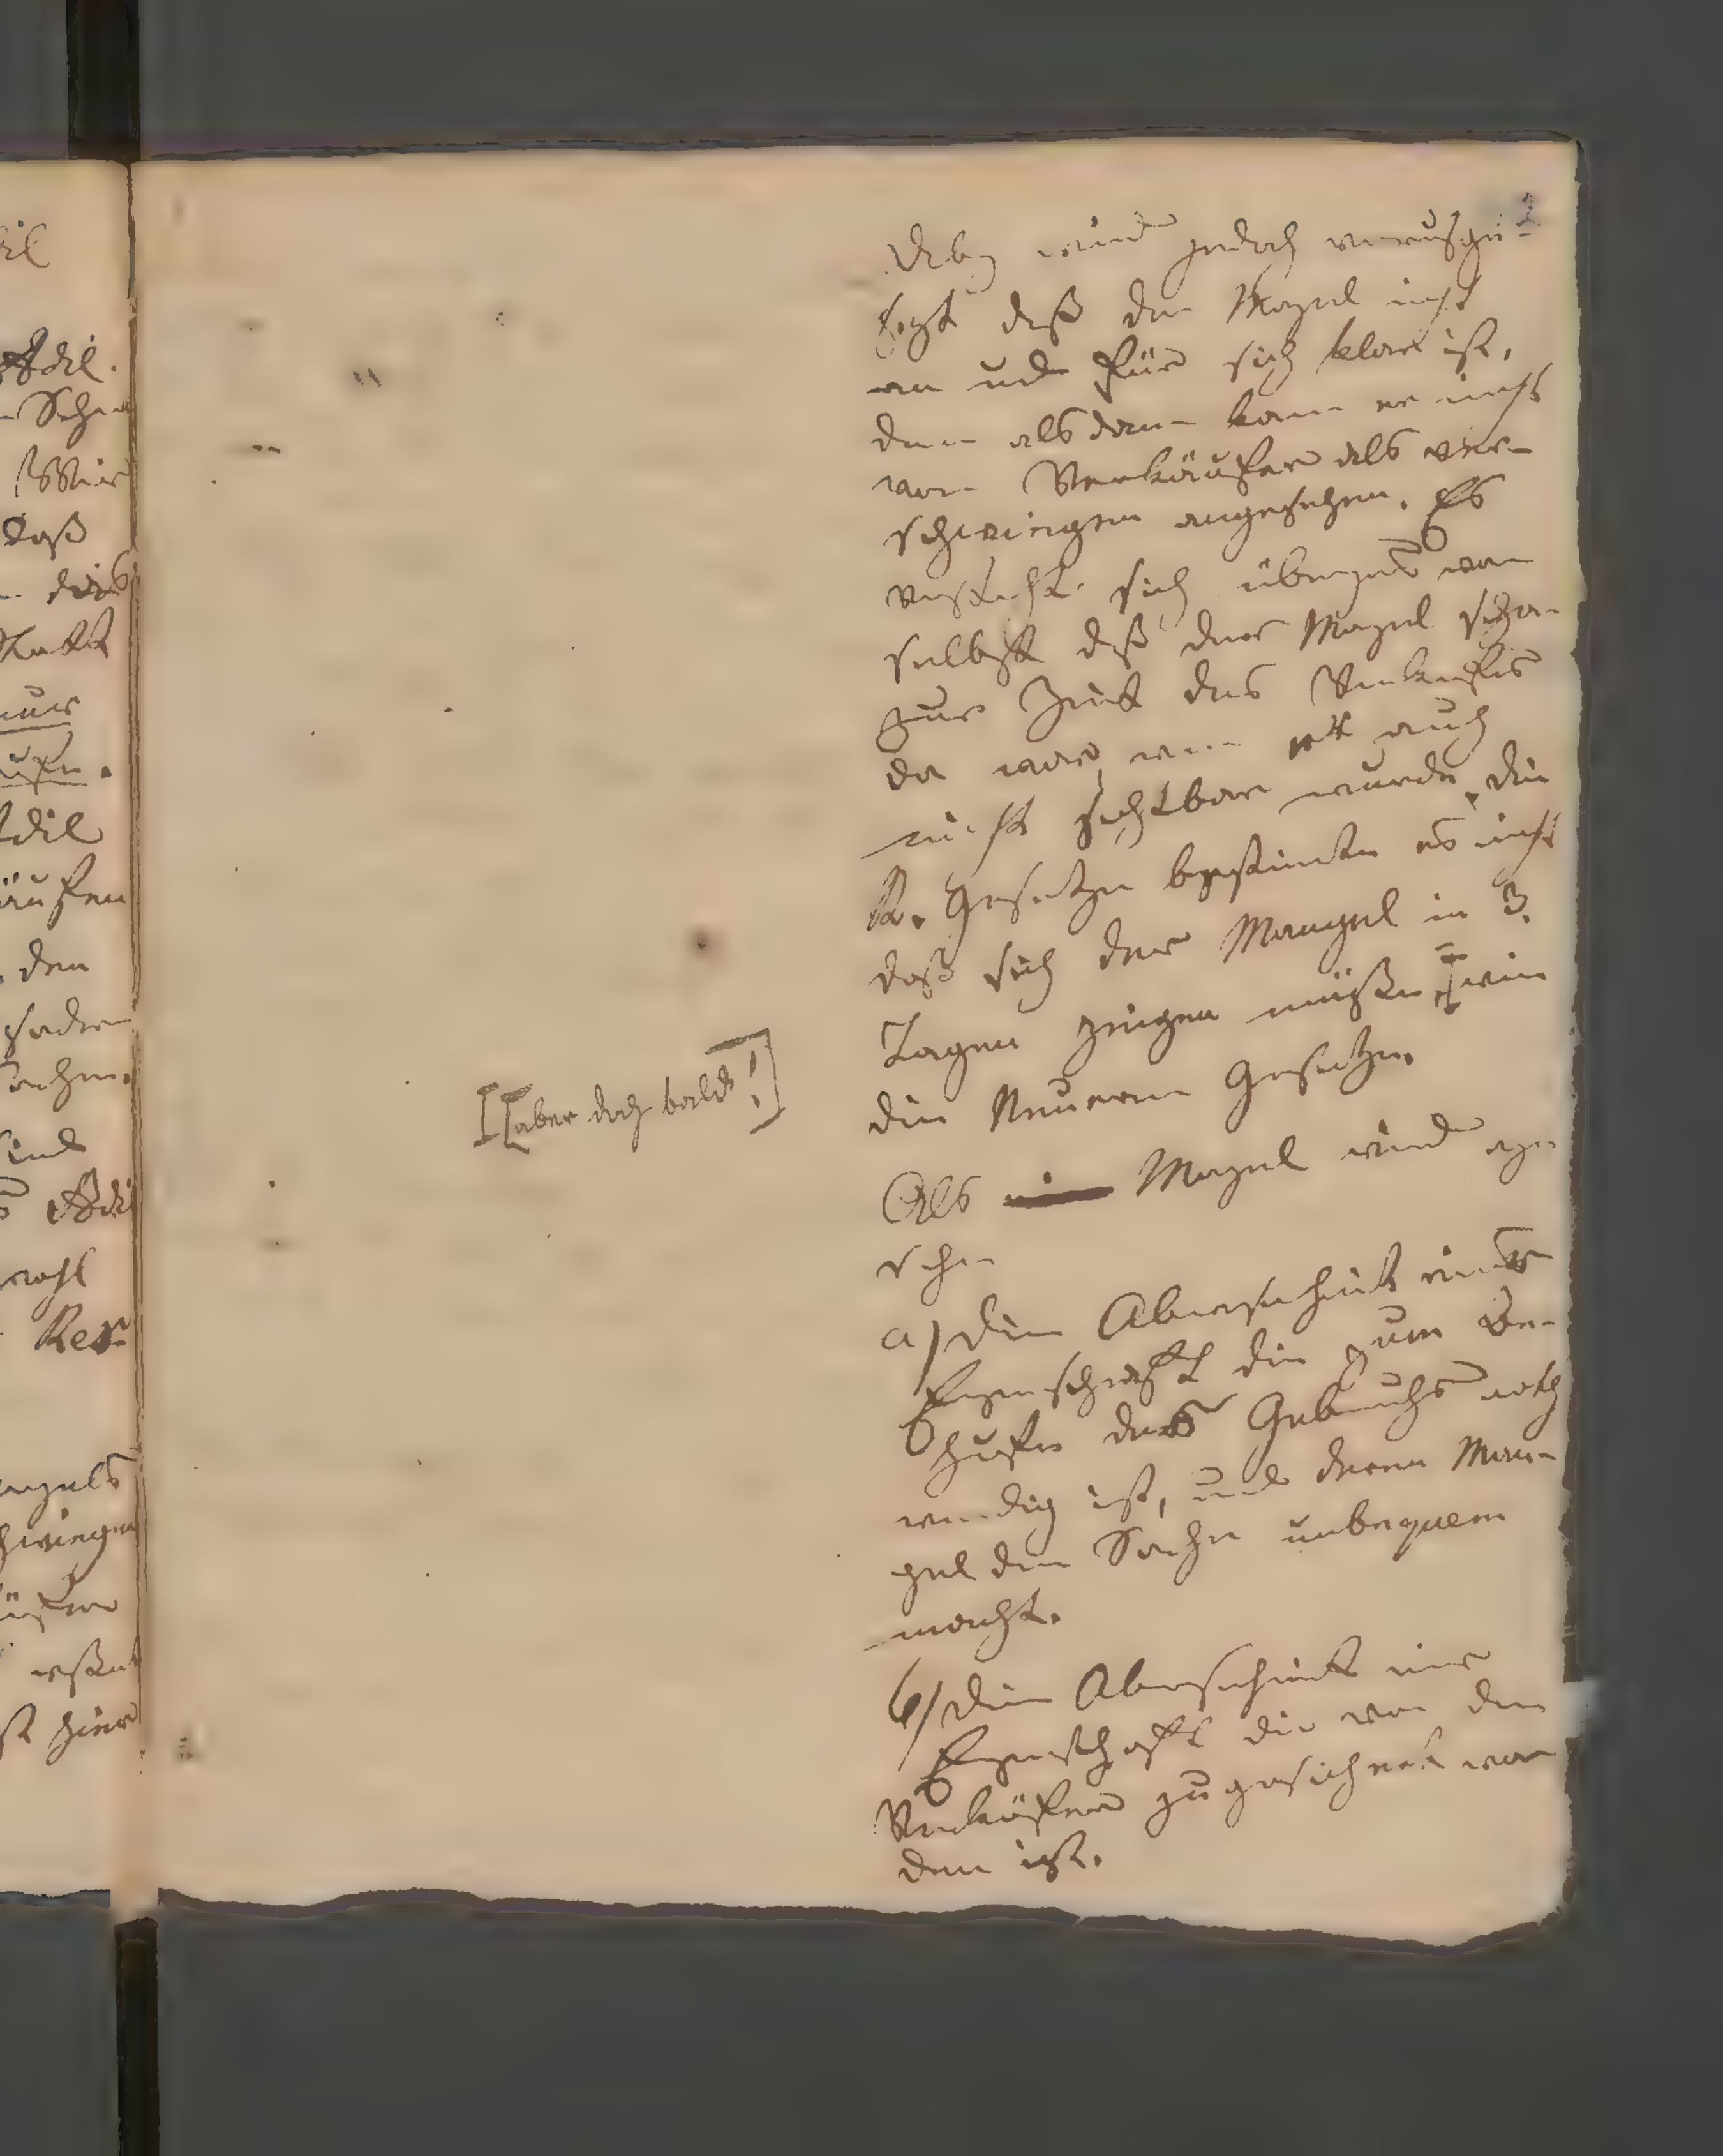 Dabey wird jedoch vorausge-
sezt daß der Mangel nicht
an und für sich klar ist,
denn alsdann kann er nicht
vom Verkäufer als ver-
schwiegen angesehen. Es
versteht sich übrigens von
selbst daß der Mangel schon
zur Zeit des Verkaufes
da war, wenn er auch
nicht sichtbar wurde, die
R. Gesetze bestimmten es nicht
daß sich der Mangel in 3.
Tagen zeigen müßte wie
die Neueren Gesetze.
[aber doch bald!]
Als Mangel wird ange-
sehen
a) Die Abwesenheit einer
Eigenschaft die zum Be-
hufe des Gebrauchs noth
wendig ist, und deren Man-
gel den Sache unbequem
macht.
b) Die Abwesenheit einer
Eigenschaft die von dem
Verkäufer zugesichert wor
den ist.